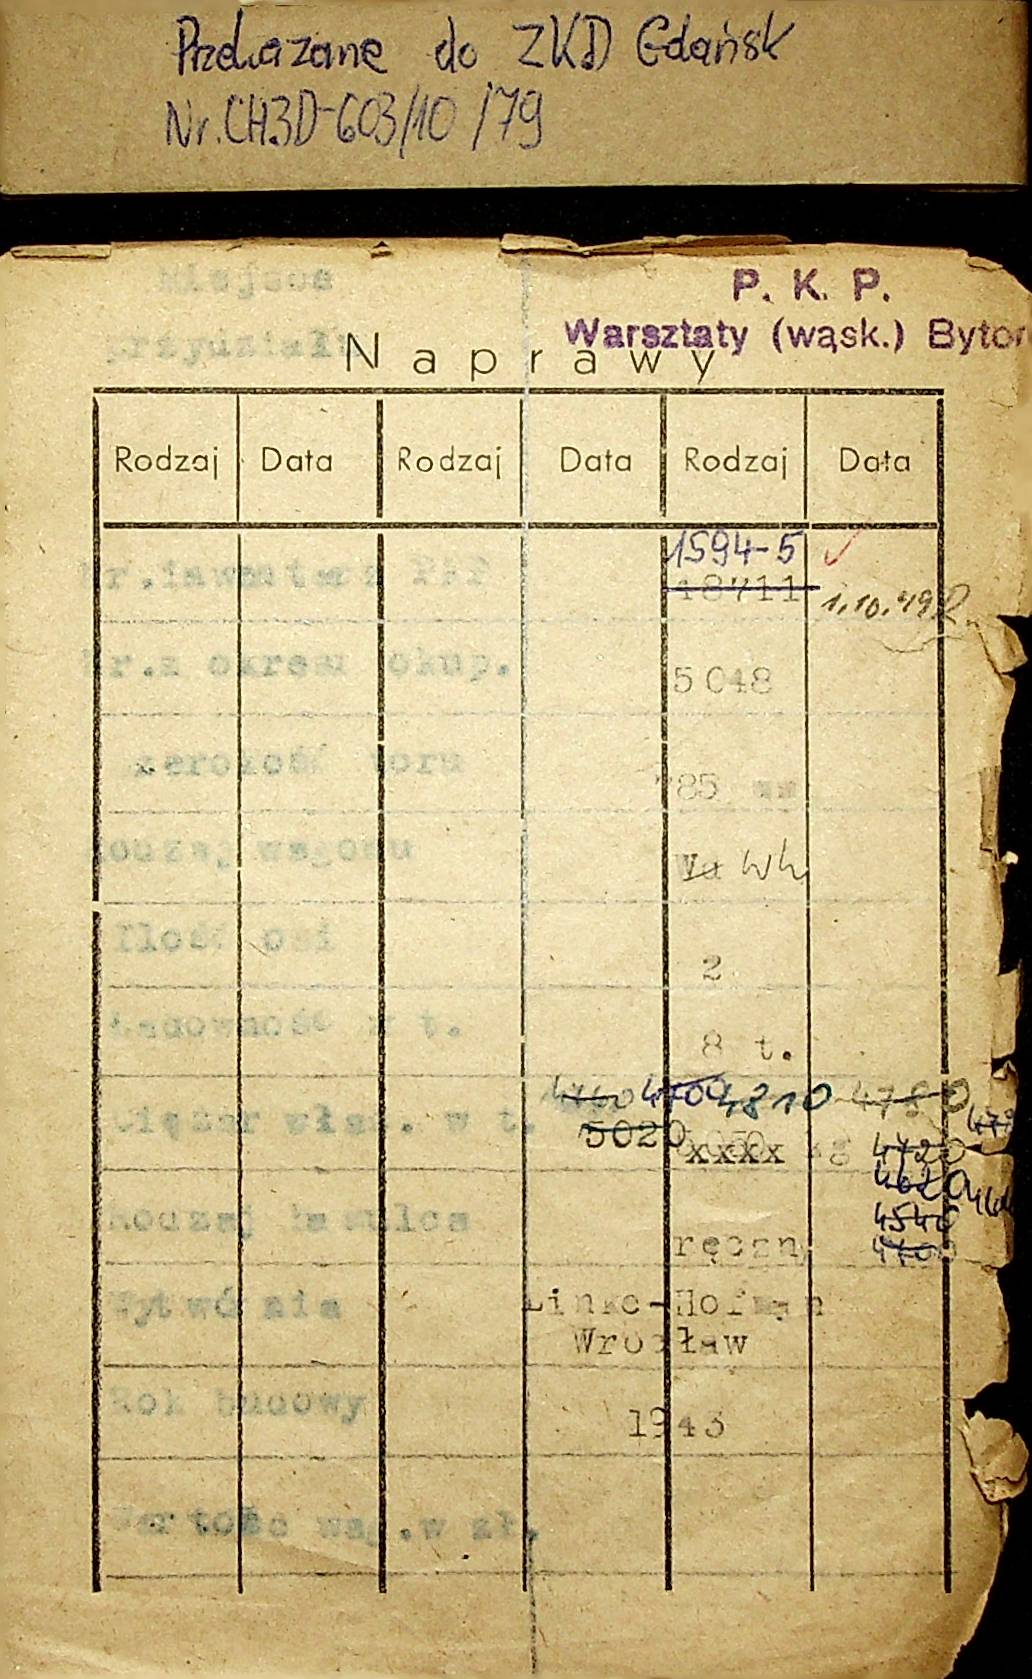 Przekazane do ZKD Gdańsk
Nr. CH3D-603/10/79
Miejsce
P. K. P.
przydziału
Warsztaty (wąsk.) Bytom
Naprawy
Rodzaj Data Rodzaj Data Rodzaj Data
1594-5
Nr.inwentarz PKP 18711 1.10.49
Nr.z okresu okup. 5048
szerokość toru 785 mm
Rodzaj wagonu Wh
Ilość osi 2
Ładowność w t. 8 t.
4760 4700 4810 4780
Ciężar włas. w t. 5020 xxxx kg 4720
4620
4540
Rodzaj hamulca ręczny 4400
Wytwórnia Linke-Hofman
Wrocław
Rok budowy 1943
Wartość wag.w zł.